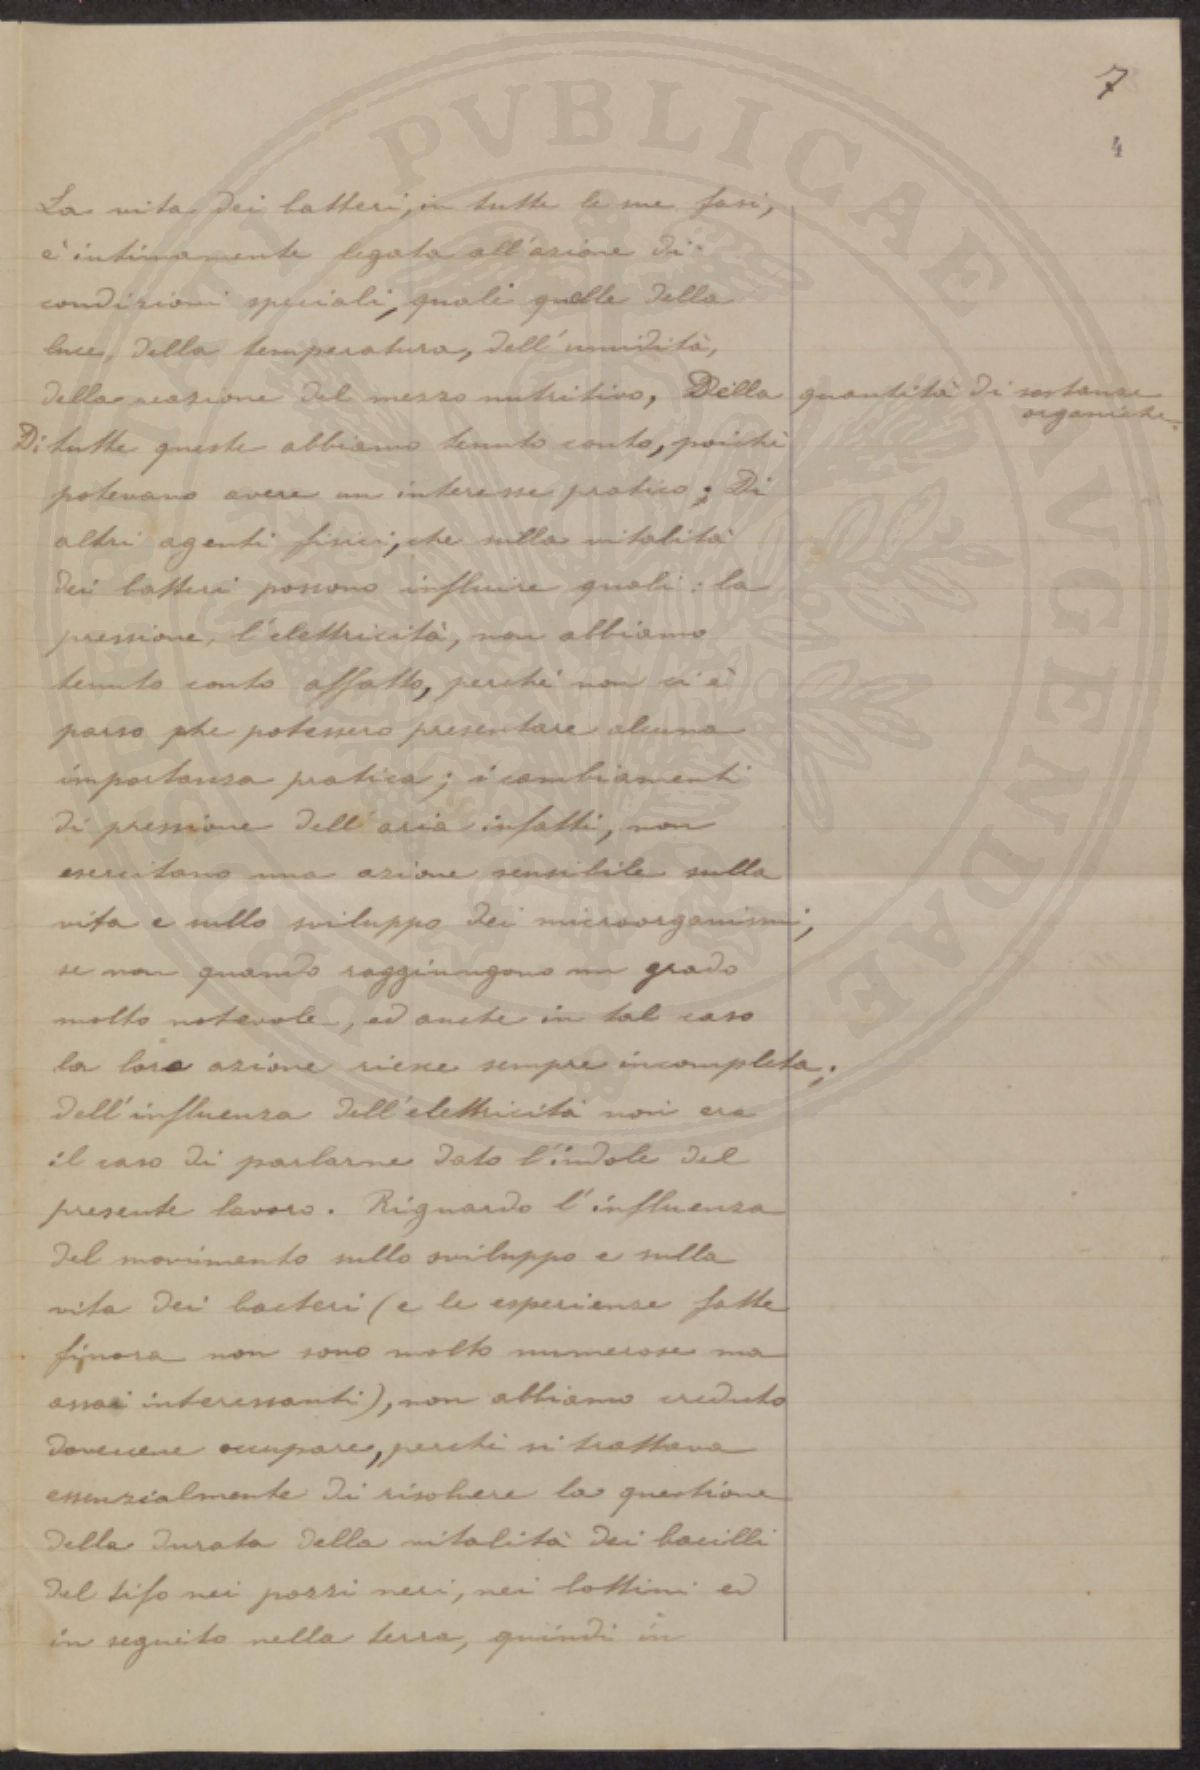 7
4
La vita dei batteri, in tutte le sue fasi,
è intimamente legata all'azione di
condizioni speciali, quali quelle della
luce, della temperatura, dell'umidità,
della reazione del mezzo nutritivo, Della quantità di sostanze
organiche.
Di tutte queste abbiamo tenuto conto, poichè
potevano avere un interesse pratico; Di
altri agenti fisici, che sulla vitalità
dei batteri possono influire quali: la
pressione, l'elettricità, non abbiamo
tenuto conto affatto, perchè non ci è
parso che potessero presentare alcuna
importanza pratica; i cambiamenti
di pressione dell'aria infatti, non
esercitano una azione sensibile sulla
vita e sullo sviluppo dei microorganismi,
se non quando raggiungono un grado
molto notevole, ed anche in tal caso
la loro azione riesce sempre incompleta;
dell'influenza dell'elettricità non era
il caso di parlarne dato l'indole del
presente lavoro. Riguardo l'influenza
del movimento sullo sviluppo e sulla
vita dei bacteri (e le esperienze fatte
finora non sono molto numerose ma
assai interessanti), non abbiamo creduto
dovercene occupare, perchè si trattava
essenzialmente di risolvere la questione
della durata della vitalità dei bacilli
del tifo nei pozzi neri, nei bottini ed
in seguito nella terra, quindi in
PVBLICAE AVGENDAE